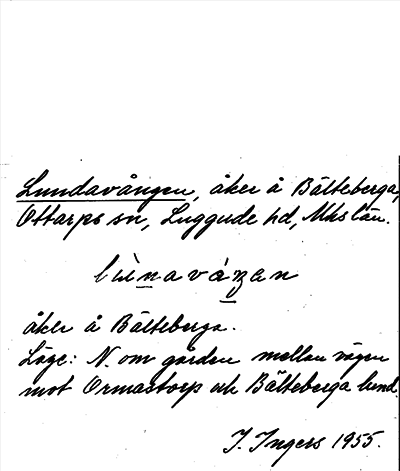 Lundavången, åker å Bälteberga,
Ottarps sn, Luggude hd, Mhs län.
lùnavázan
åker å Bälteberga.
Läge: N. om gården mellan vägen
mot Ormastorp och Bälteberga lund.
I. Ingers 1955.